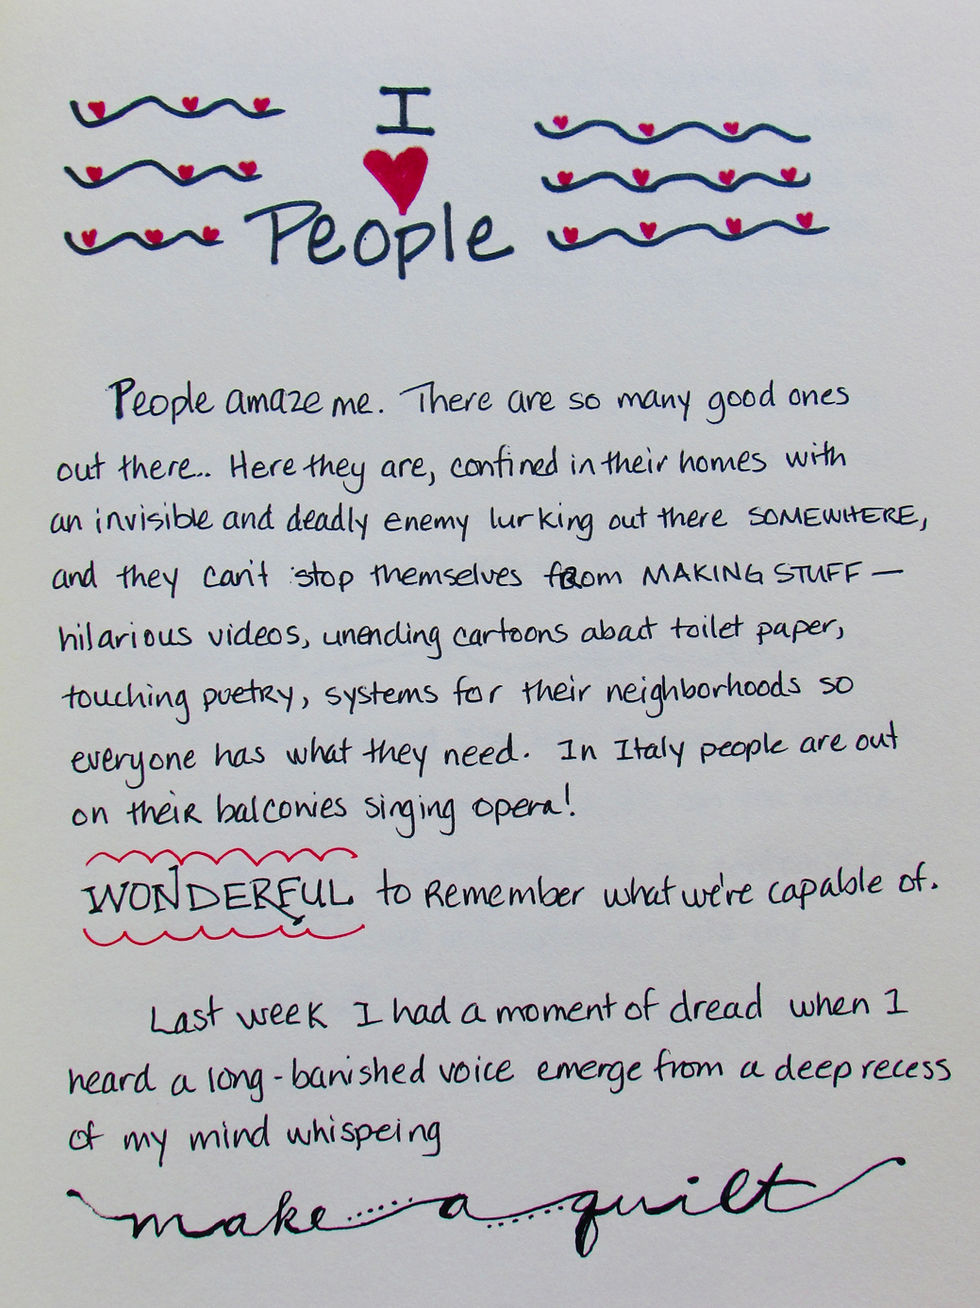 I
People
People amaze me. There are so many good ones
out there.. Here they are, confined in their homes with
an invisible and deadly enemy lurking out there SOMEWHERE,
and they can't stop themselves from MAKING STUFF —
hilarious videos, unending cartoons about toilet paper,
touching poetry, systems for their neighborhoods so
everyone has what they need. In Italy people are out
on their balconies singing opera!
WONDERFUL to Remember what we're capable of.
Last week I had a moment of dread when I
heard a long-banished voice emerge from a deep recess
of my mind whispeing
make a quilt